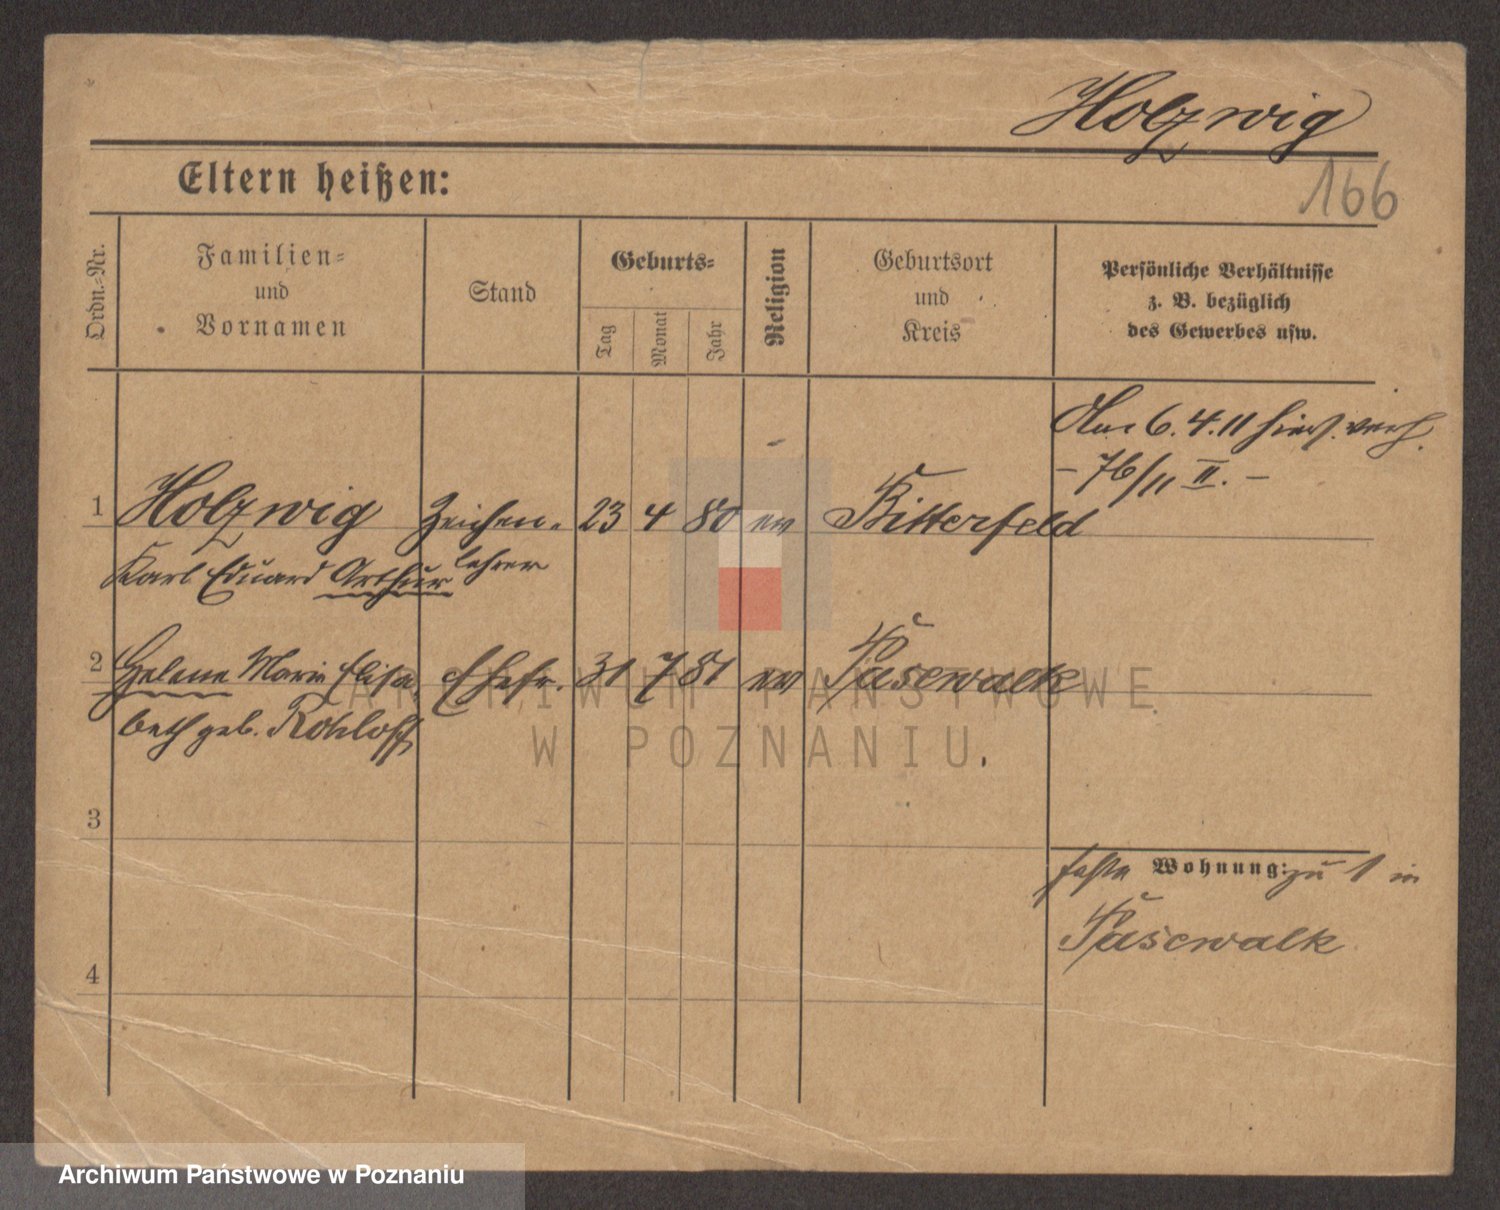 Holzwig
166
Eltern heißen:
Ordn.-Nr.
Familien-
und
Vornamen
Stand
Geburts-
Tag
Monat
Jahr
Religion
Geburtsort
und
Kreis
Persönliche Verhältnisse
z. B. bezüglich
des Gewerbes usw.
Am 6.4.11 hier verh.
- 76/11 II. -
1 Holzwig Zeichen- 23 4 80 ev Bitterfeld
Karl Eduard Arthur lehrer
2 Helene Marie Elisa- Ehefr. 31 7 81 ev Pasewalk
beth geb. Rohloff
3
feste Wohnung: zu 1 in
Pasewalk
4
ARCHIWUM PAŃSTWOWE
W POZNANIU
Archiwum Państwowe w Poznaniu